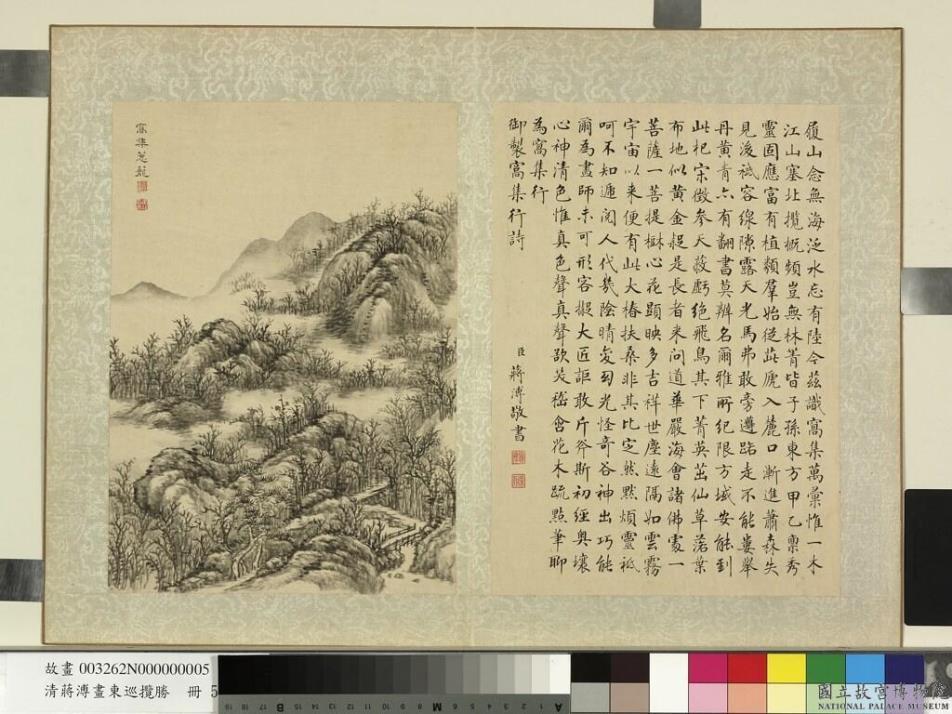 履山念無海泛水忘有陸今茲識窩集萬彙惟一木
江山塞北攬概頻豈無林菁皆子孫東方甲乙稟秀
靈固應富有植類羣始從茈入麓口漸進蕭森失
見後祗容線隙露天光馬弗敢旁走不能婁舉
丹黃青六有翻書莫辨名爾雅所紀限方域安能到
此杞宋徵參天蔽虧絕飛鳥其下菁英茁仙草落葉
布地似黃金疑是長者來問道華嚴海會諸佛處一
菩薩一菩提樹心花顯映多吉祥世塵遠隔如雲霧
宇宙以來便有此大椿扶桑非其比定然默煩靈祗
呵不知遞閱人代幾陰晴変幻光怪奇谷神出巧能
爾為畫師未可形容擬大匠詎敢斤斧斯初經奧壤
心神清色惟真色聲真聲欲笑嵇含花木疏點筆聊
為窩集行
御製窩集行詩
臣蔣溥敬書
窩集
故畫 003262N000000005
清蔣溥畫東巡攬勝　冊 5
19 18 17 16 15 14 13 12 11 10 9 8 7 6 5 4 3 2 1
B M A
國立故宮博物院
NATIONAL PALACE MUSEUM